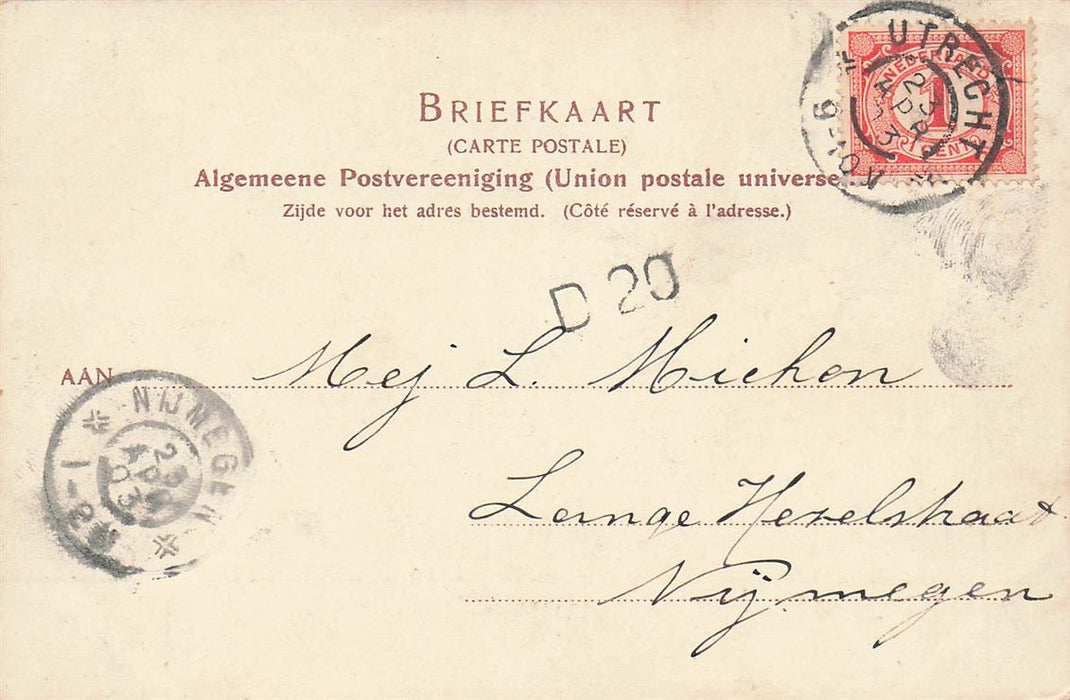 BRIEFKAART
(CARTE POSTALE)
Algemeene Postvereeniging (Union postale universe
Zijde voor het adres bestemd. (Côté réservé à l'adresse.)
UTRECHT
23 APR 03
9-10V
NEDERLAND
1
1 CENT
D 20
AAN Mej L. Michon
Lange Hezelstraat
Nijmegen
NIJMEGEN
23 APR 03